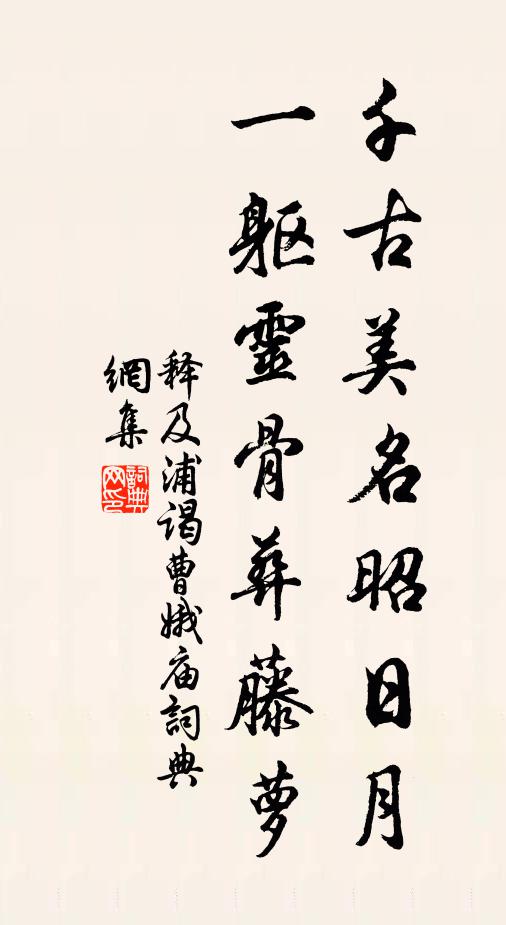 千古美名昭日月
一躯靈骨葬藤萝
释及浦谒曹娥庙詞典
網集
詞典网印